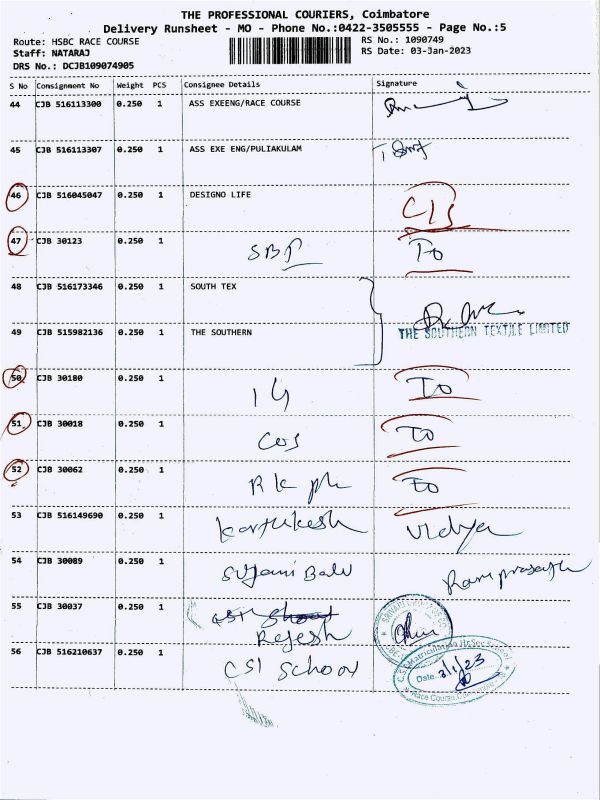 THE PROFESSIONAL COURIERS, Coimbatore
Delivery Runsheet - MO - Phone No.:0422-3505555 - Page No.:5
Route: HSBC RACE COURSE RS No.: 1090749
Staff: NATARAJ RS Date: 03-Jan-2023
DRS No.: DCJB109074905
S No Consignment No Weight PCS Consignee Details Signature
44 CJB 516113300 0.250 1 ASS EXEENG/RACE COURSE
45 CJB 516113307 0.250 1 ASS EXE ENG/PULIAKULAM
46 CJB 516045047 0.250 1 DESIGNO LIFE C/S
47 CJB 30123 0.250 1 SBI To
48 CJB 516173346 0.250 1 SOUTH TEX
49 CJB 515982136 0.250 1 THE SOUTHERN THE SOUTHERN TEXTILE LIMITED
50 CJB 30180 0.250 1 To
51 CJB 30018 0.250 1 To
52 CJB 30062 0.250 1 To
53 CJB 516149690 0.250 1 Karthikesh Vidya
54 CJB 30089 0.250 1 Ramprasath
55 CJB 30037 0.250 1
Rajesh
56 CJB 516210637 0.250 1 CSI School
Date 3/1/23